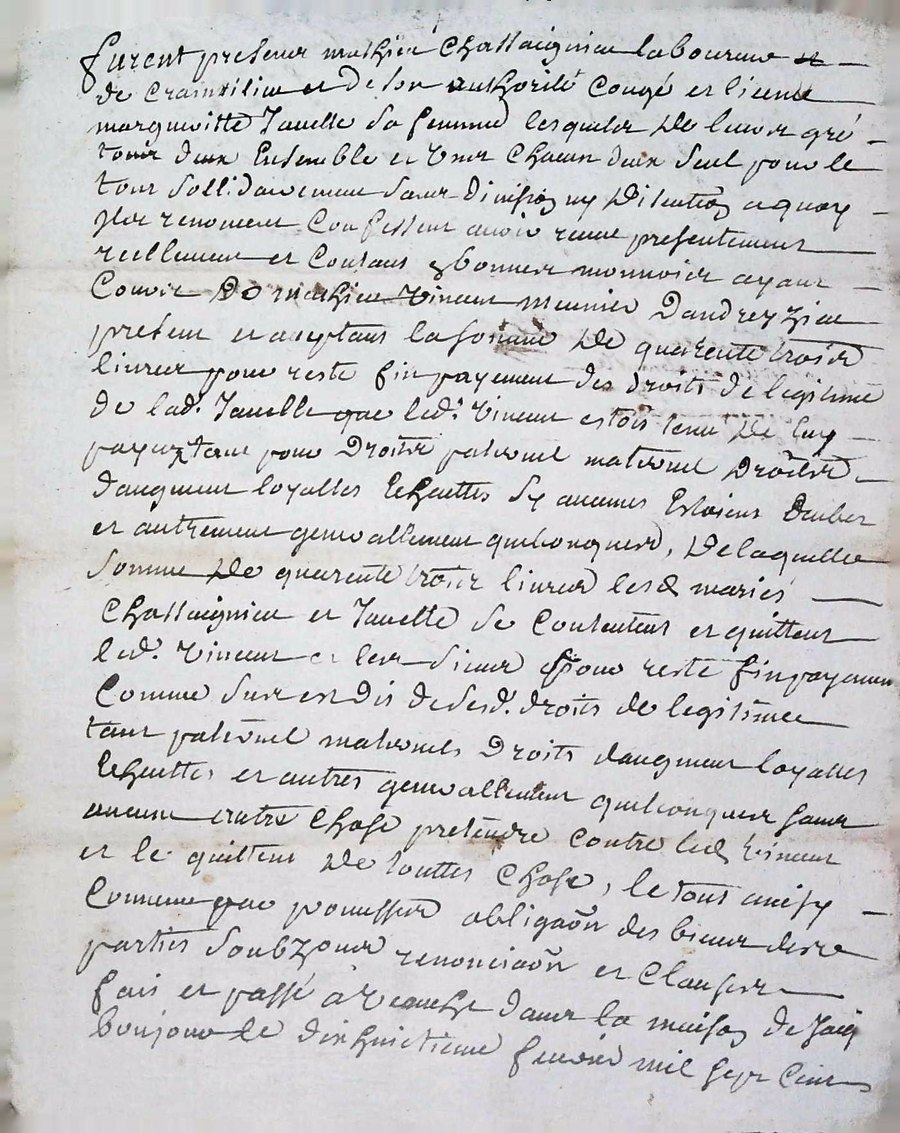 furent presens mathieu Chassaignieu laboureur
de et de son authorité Congé et licence
margueritte Janelle sa femme lesquels de leurs gré
tous deux Ensemble et Un Chacun deux seul pour le
tout sollidairement sans Division ny Discution a quoy
Ils renoncent Confessent avoir receu presentement
reellement et Contant En bonnes monnoies ayant
Cours De mathieu Vincent meunier Dandreyziat
present et aceptant la somme De quarente trois
livres pour reste fin payement des droits de legitime
de lad. Janelle que led. Vincent estoit tenu De luy
payer tant pour Droits paternel maternel Droits
daugment loyalles Echeuttes sy aucunes Estoient
et autrement generallement quelconques, De laquelle
somme De quarente trois livres lesd mariés
Chassaignieu et Janelle se Contentent et quittent
led. Vincent et les siens pour reste fin payement
Comme sus est Dit de sesd. droits de legitime
tant paternel maternels Droits daugment loyalles
Echeuttes et autres generallement quelconques sans
aucune autre Chose pretendre contre led Vincent
et le quittent De touttes Chose, le tout ainsy
Comme par obligaõn des biens desd
parties soubz renonciaõn et Clauses
fait et passé à dans la maison de Jacq
bonjour le dix huictieme fevrier mil sept Cens